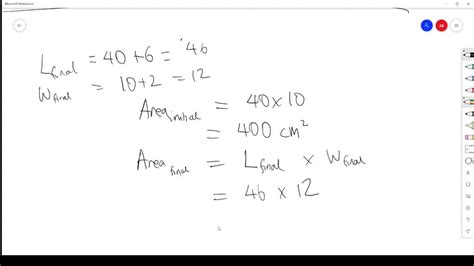 Microsoft Whiteboard
L final = 40 + 6 = 46
W final = 10 + 2 = 12
Area initial = 40 × 10
= 400 cm²
Area final = L final × W final
= 46 × 12